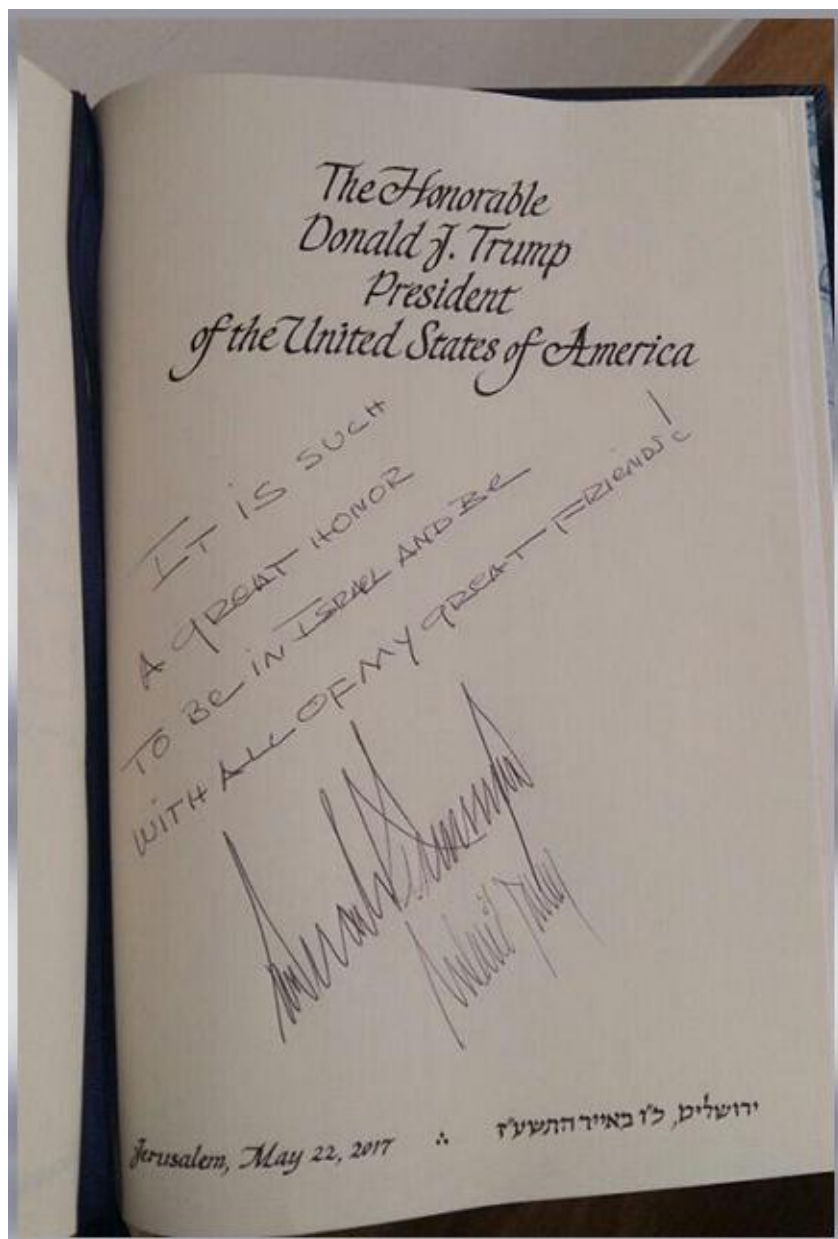 The Honorable
Donald J. Trump
President
of the United States of America
IT IS SUCH
A GREAT HONOR
TO BE IN ISRAEL AND BE
WITH ALL OF MY GREAT FRIENDS!
Jerusalem, May 22, 2017 ∴ ירושלים, כ"ו באייר התשע"ז